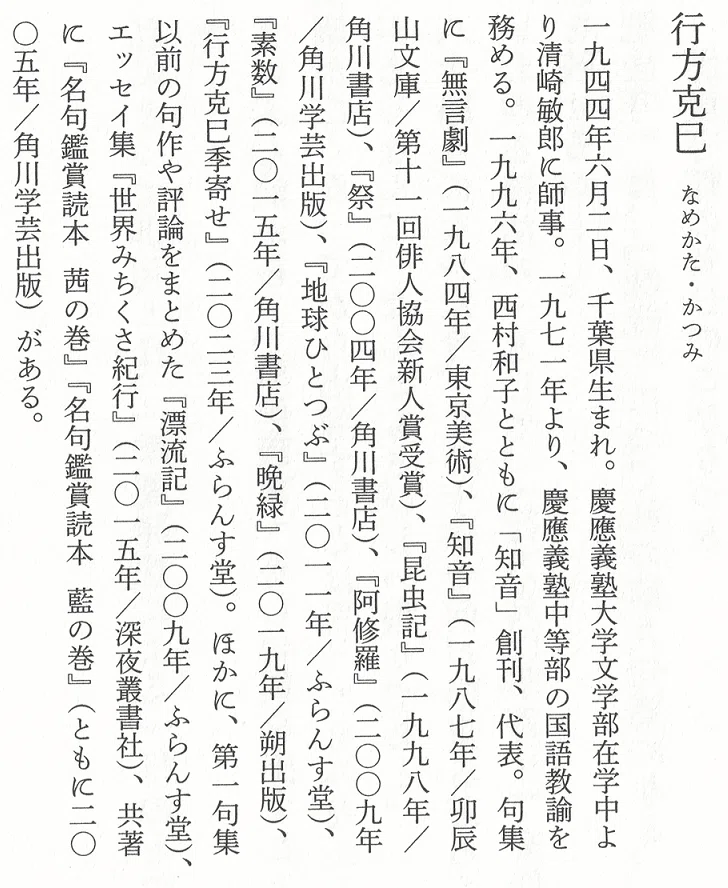 行方克巳　なめかた・かつみ
一九四四年六月二日、千葉県生まれ。慶應義塾大学文学部在学中よ
り清崎敏郎に師事。一九七一年より、慶應義塾中等部の国語教諭を
務める。一九九六年、西村和子とともに「知音」創刊、代表。句集
に『無言劇』（一九八四年／東京美術）、『知音』（一九八七年／卯辰
山文庫／第十一回俳人協会新人賞受賞）、『昆虫記』（一九九八年／
角川書店）、『祭』（二〇〇四年／角川書店）、『阿修羅』（二〇〇九年
／角川学芸出版）、『地球ひとつぶ』（二〇一一年／ふらんす堂）、
『素数』（二〇一五年／角川書店）、『晩緑』（二〇一九年／朔出版）、
『行方克巳季寄せ』（二〇二三年／ふらんす堂）。ほかに、第一句集
以前の句作や評論をまとめた『漂流記』（二〇〇九年／ふらんす堂）、
エッセイ集『世界みちくさ紀行』（二〇一五年／深夜叢書社）、共著
に『名句鑑賞読本　茜の巻』『名句鑑賞読本　藍の巻』（ともに二〇
〇五年／角川学芸出版）がある。